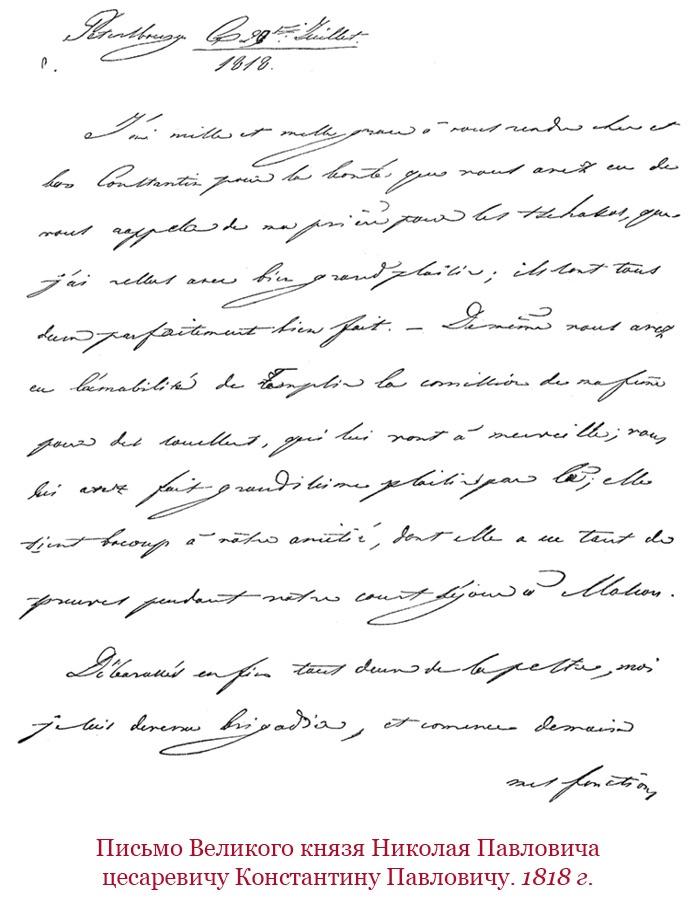 Petersbourg 1818.
J'ai mille et mille grace à vous rendre cher et
bon Constantin pour la bonté que vous avez eu de
vous rappeler de ma prière pour les tschakos, que
j'ai recus avec bien grand plaisir; ils sont tous
deux parfaitement bien fait. — De même vous avez
eu l'amabilité de remplir la comission de ma femme
pour des qui lui vont à merveille; vous
lui avez fait grandissime plaisir par là; elle
tient baucoup à vôtre amitié, dont elle a eu tant de
preuves pendant nôtre court séjour à
Débarassés enfin tout deux de la moi
je suis devenu brigadier, et comence demain
mes fonctions
Письмо Великого князя Николая Павловича
цесаревичу Константину Павловичу. 1818 г.